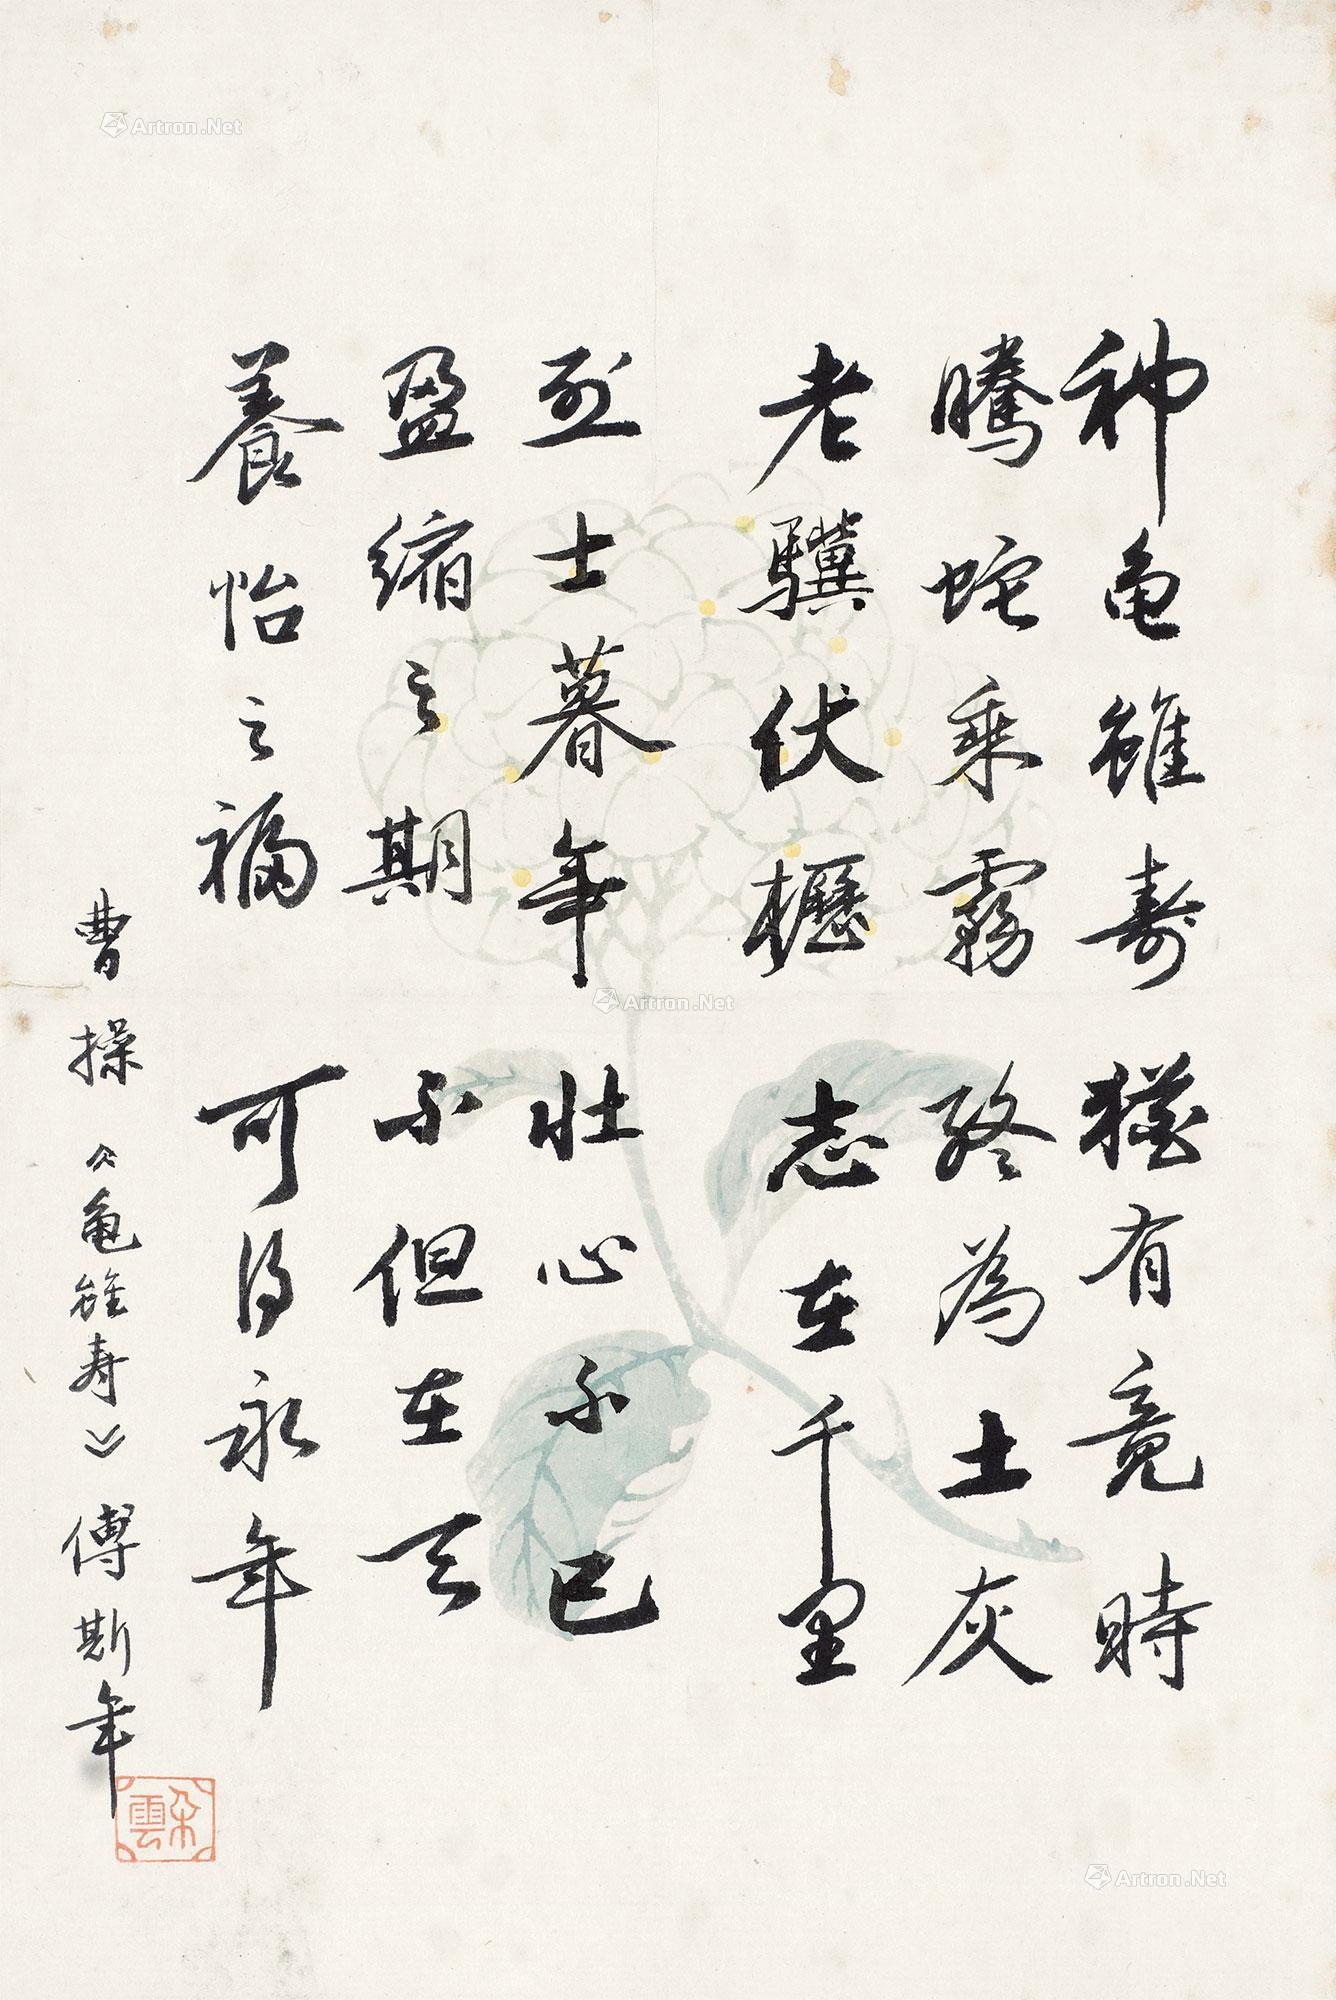 神龟雖寿 猶有竟時
騰蛇乘霧 終為土灰
老驥伏櫪 志在千里
烈士暮年 壯心不已
盈缩之期 不但在天
養怡之福 可得永年
曹操《龟雖寿》傅斯年
朵雲
Artron.Net
Artron.Net
Artron.Net